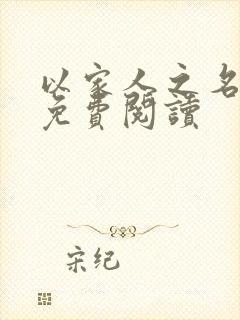 以家人之名
免費閱讀
宋纪